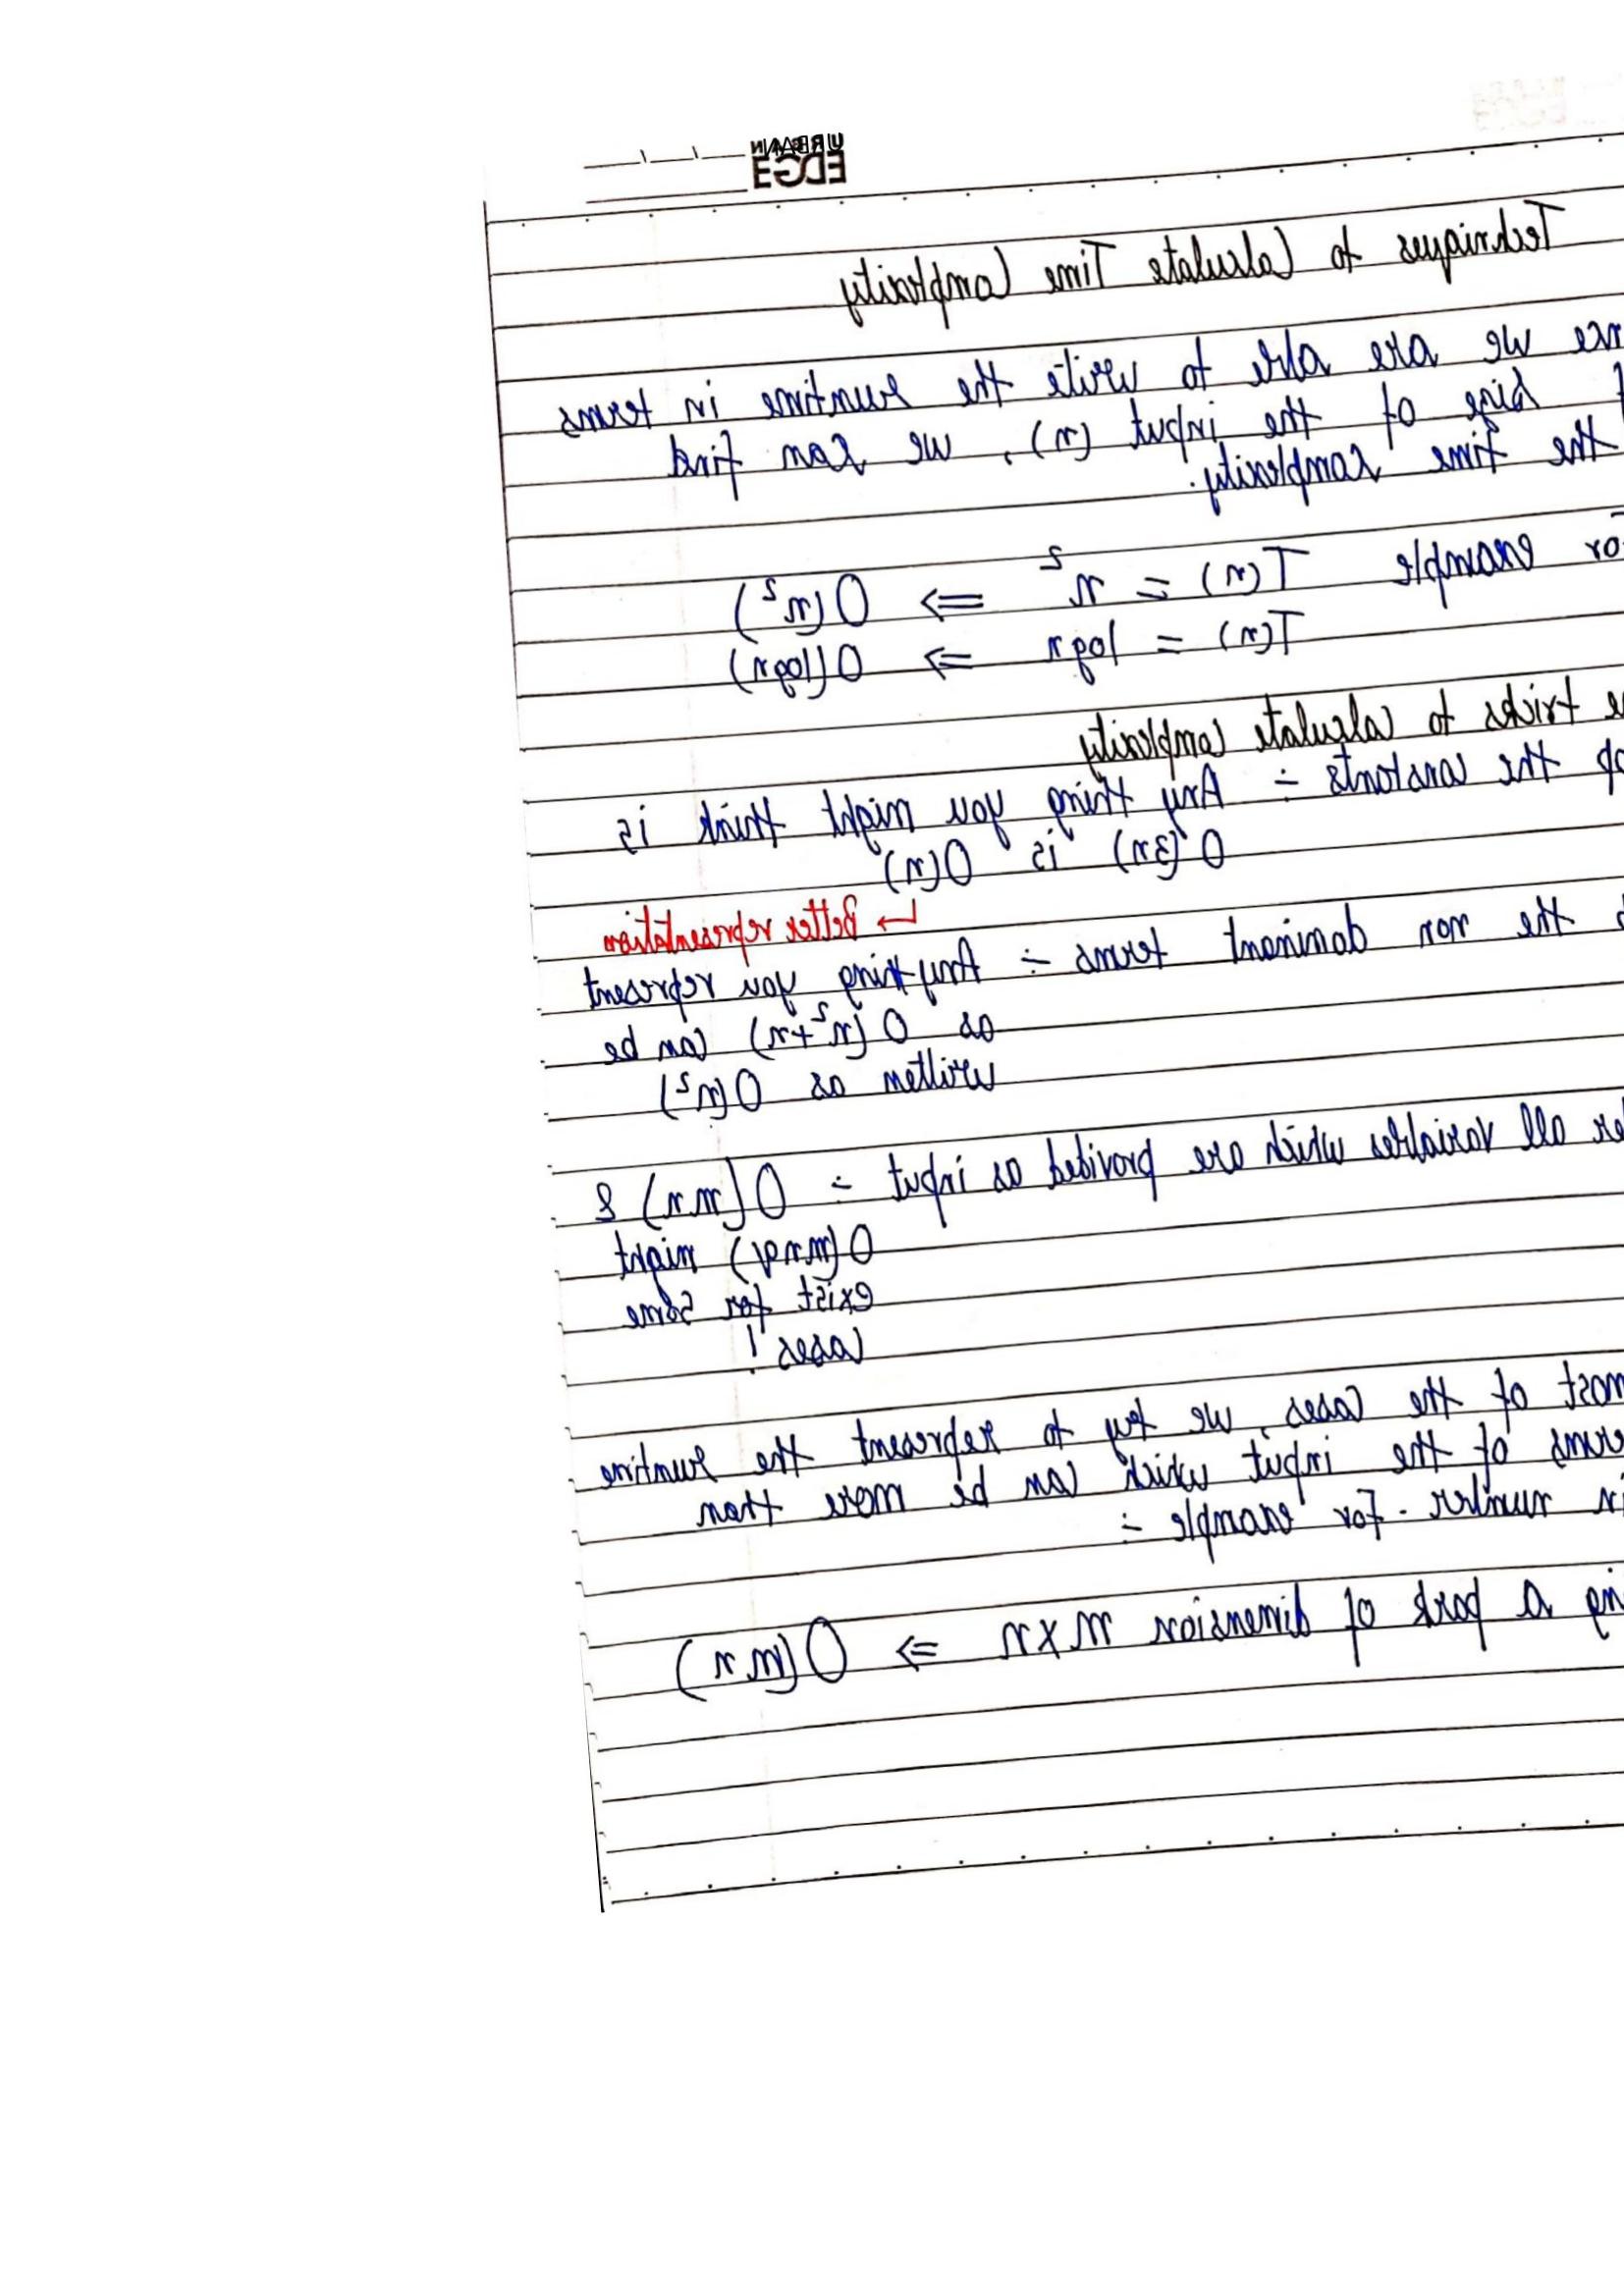 URBAN
EDGE
Techniques to Calculate Time Complexity
we are able to write the runtime in terms
size of the input (n), we can find
the time complexity.
example T(n) = n² => O(n²)
T(n) = logn => O(logn)
tricks to calculate complexity
the constants ÷ Any thing you might think is
O(3n) is O(n)
↳ Better representation
the non dominant terms ÷ Anything you represent
as O(n²+n) can be
written as O(n²)
all variables which are provided as input ÷ O(mn) &
O(mnq) might
exist for some
cases!
most of the cases, we try to represent the runtime
of the input which can be more than
number. For example ÷
a park of dimension m x n => O(mn)